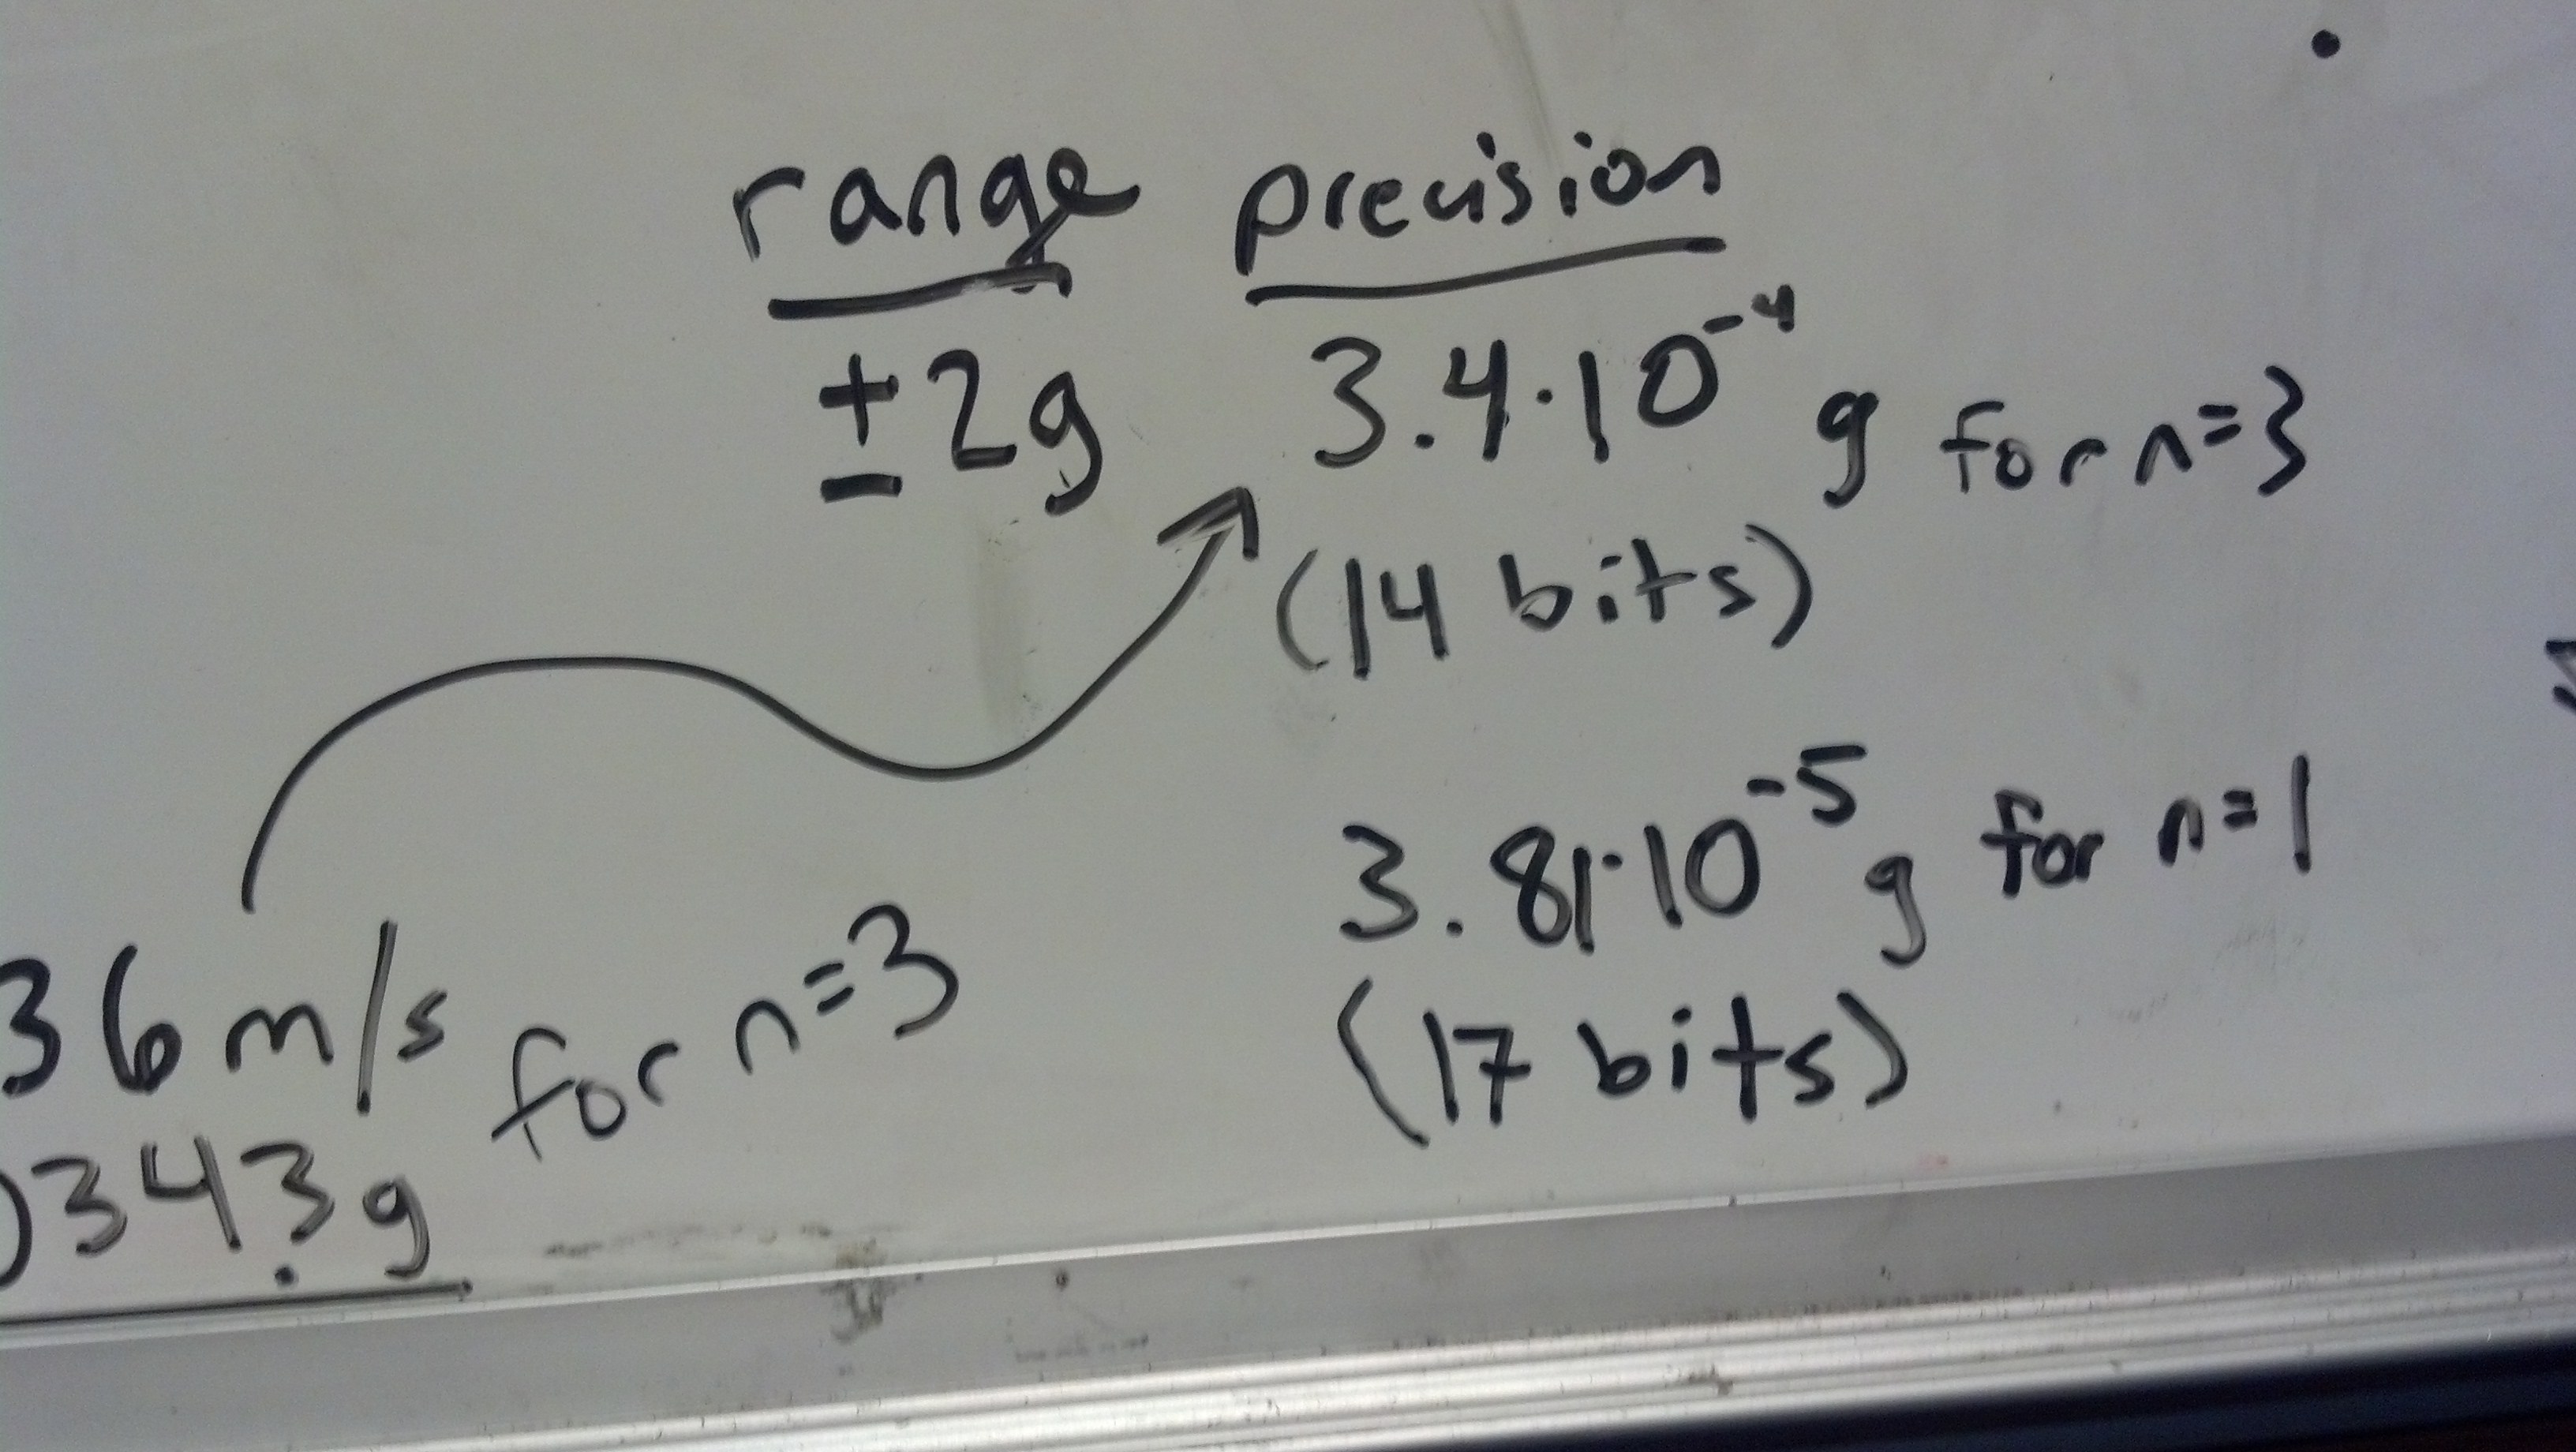 range precision
±2g 3.4·10⁻⁴ g for n=3
(14 bits)
3.81·10⁻⁵ g for n=1
(17 bits)
36 m/s for n=3
0343g